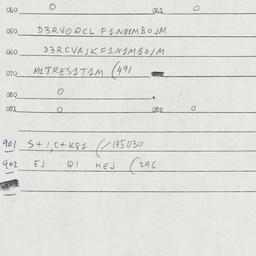 040 0 041 0
050 D3RVORCL F1NDIMBOJM
060 D3RCVAJKF1N1MBOJM
070 M1TRES1T1M (491
080 0
081 0 082 0
901 S+1,C+K81 (/145030
902 EJ Q1 HEJ (246